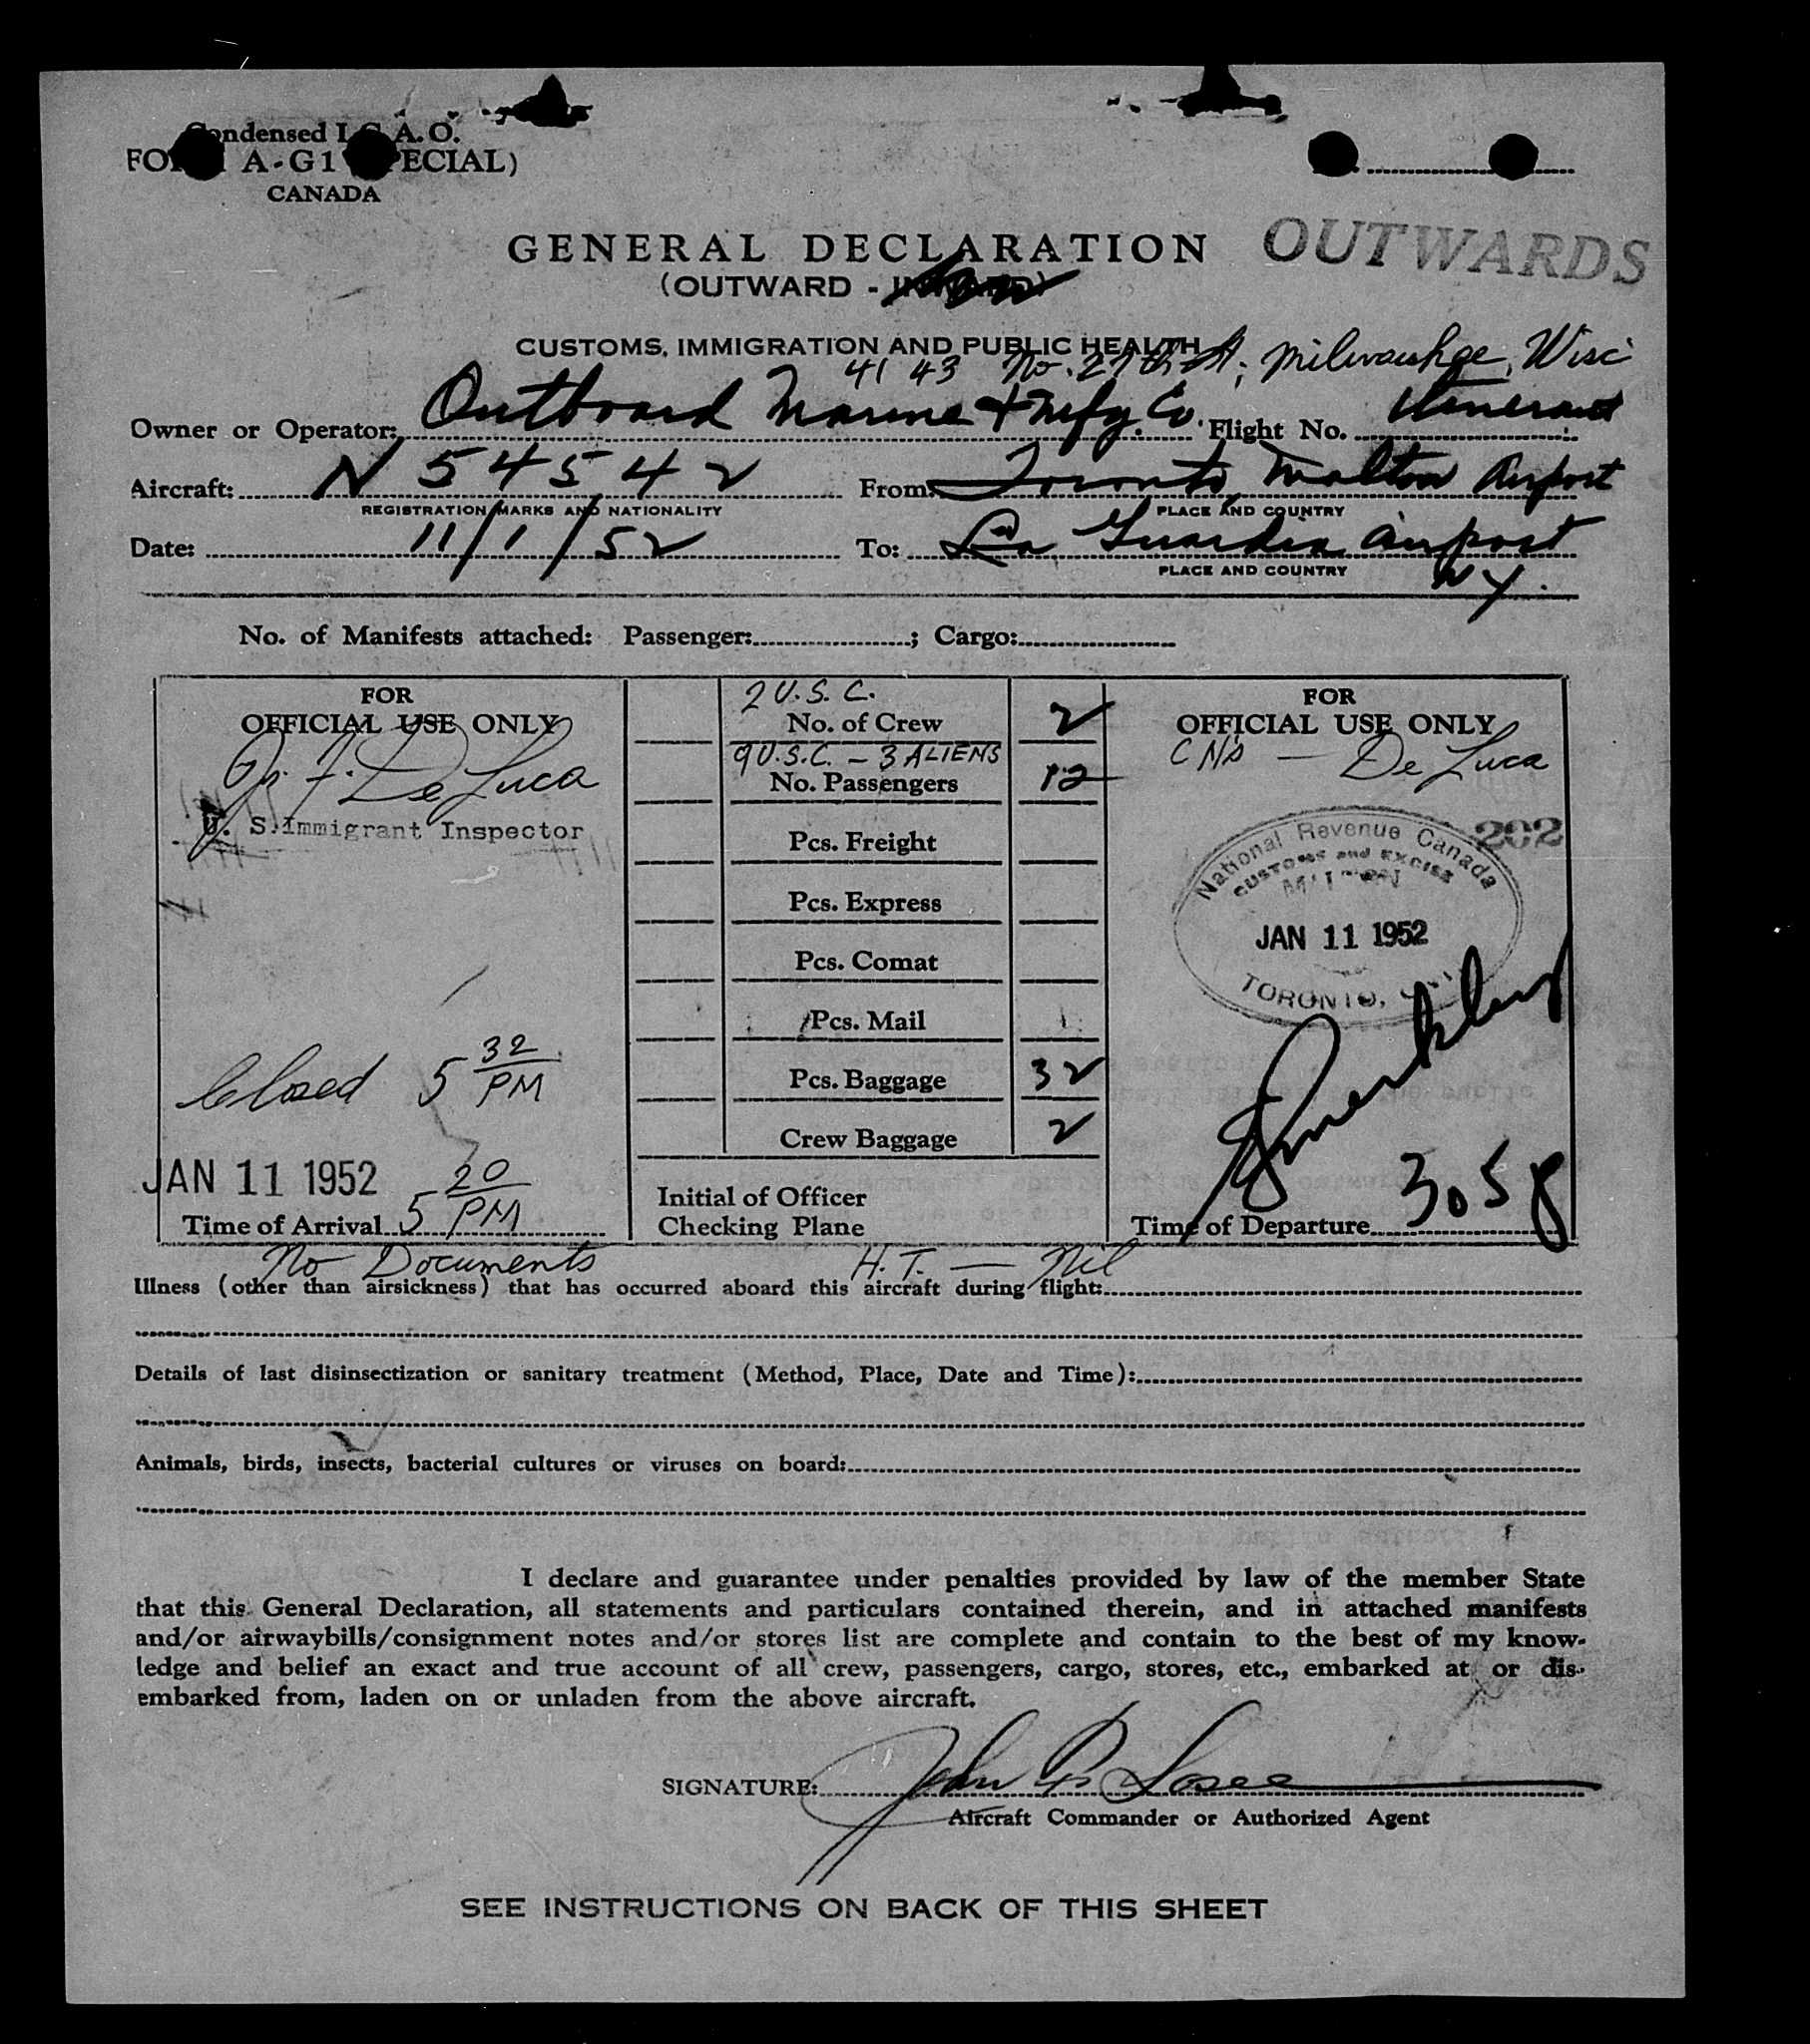 Condensed I.C.A.O.
FORM A-G1 (SPECIAL)
CANADA
OUTWARDS
GENERAL DECLARATION
(OUTWARD - INWARD)
CUSTOMS, IMMIGRATION AND PUBLIC HEALTH
4143 No. 27th St; Milwaukee, Wisc
Owner or Operator: Outboard Marine & Mfg. Co. Flight No. Itinerant
Aircraft: N 54542 From: Toronto, Malton Airport
REGISTRATION MARKS AND NATIONALITY PLACE AND COUNTRY
Date: 11/1/52 To: La Guardia Airport
PLACE AND COUNTRY N.Y.
No. of Manifests attached: Passenger: ; Cargo:
FOR
OFFICIAL USE ONLY
De Luca
U. S. Immigrant Inspector
Closed 5 32 PM
JAN 11 1952 5 20 PM
Time of Arrival
2 U.S.C.
No. of Crew 2
9 U.S.C. - 3 ALIENS
No. Passengers 12
Pcs. Freight
Pcs. Express
Pcs. Comat
Pcs. Mail
Pcs. Baggage 32
Crew Baggage 2
Initial of Officer
Checking Plane
FOR
OFFICIAL USE ONLY
De Luca
202
National Revenue Canada
CUSTOMS and EXCISE
MALTON
JAN 11 1952
TORONTO,
Time of Departure 305 p
No Documents H.T. — Nil
Illness (other than airsickness) that has occurred aboard this aircraft during flight:
Details of last disinsectization or sanitary treatment (Method, Place, Date and Time):
Animals, birds, insects, bacterial cultures or viruses on board:
I declare and guarantee under penalties provided by law of the member State
that this General Declaration, all statements and particulars contained therein, and in attached manifests
and/or airwaybills/consignment notes and/or stores list are complete and contain to the best of my know-
ledge and belief an exact and true account of all crew, passengers, cargo, stores, etc., embarked at or dis-
embarked from, laden on or unladen from the above aircraft.
SIGNATURE: John P. Losee
Aircraft Commander or Authorized Agent
SEE INSTRUCTIONS ON BACK OF THIS SHEET